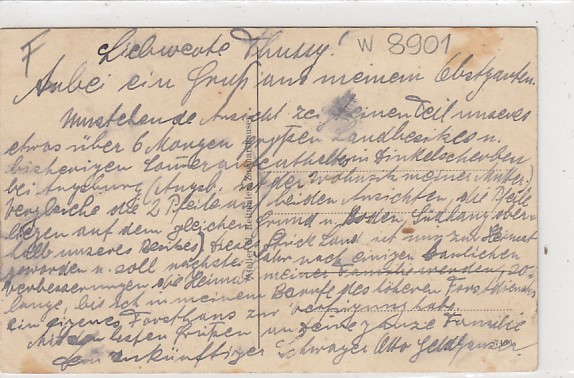 F
W 8901
Liebwerte Thussy!
Anbei ein Gruß aus meinem Obstgarten.
Umstehende Ansicht zeigt einen Teil unseres
etwas über 6 Morgen großen Landbesitzes u.
bisherigen Dinkelscherben
bei Augsburg (Augsb. ist der Wohnsitz meiner Mutter.)
vergleiche die 2 Pfeile auf beiden Ansichten, die Pfeile
liegen auf dem gleichen Grund u. Boden, Südhang ober-
halb unseres Besitzes) Dieses Stück Land ist mir zur Heimat
geworden u. soll nächstes Jahr nach einigen baulichen
Verbesserungen die Heimat meiner Familie werden, so-
lange, bis ich in meinem Berufe des höheren Forstdienstes
ein eigenes Forsthaus zur Verfügung habe.
Mit den besten Grüßen an Deine ganze Familie
Dein zukünftiger Schwager Otto